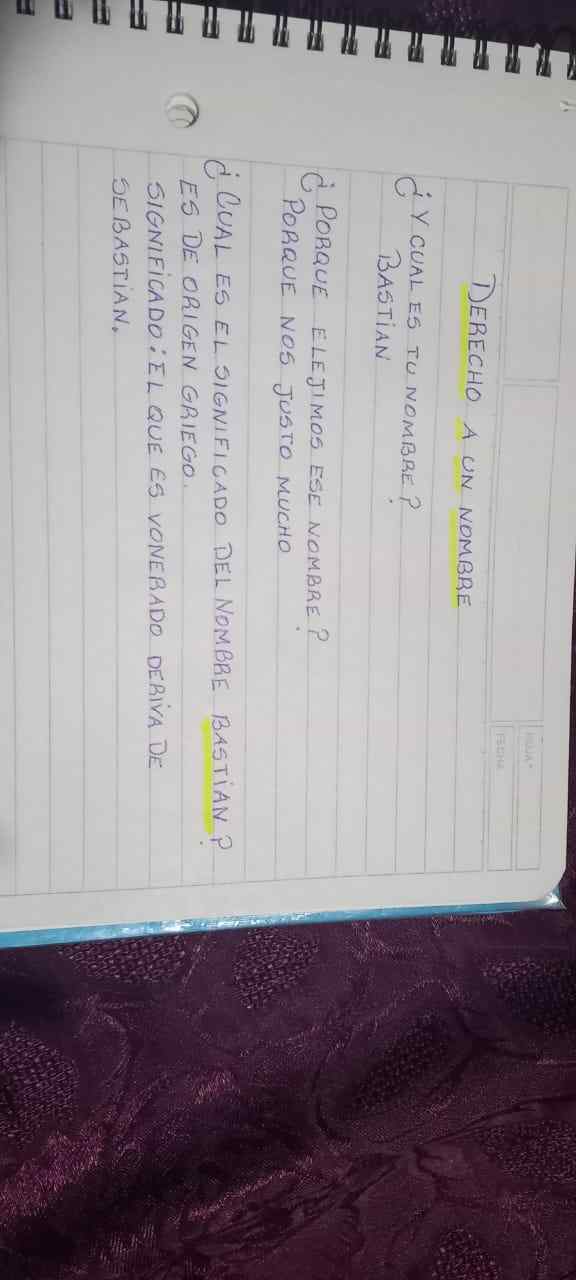 HOJA N°
FECHA
DERECHO A UN NOMBRE
¿Y CUAL ES TU NOMBRE?
BASTIAN
¿PORQUE ELEJIMOS ESE NOMBRE?
PORQUE NOS JUSTO MUCHO
¿CUAL ES EL SIGNIFICADO DEL NOMBRE BASTIAN?
ES DE ORIGEN GRIEGO.
SIGNIFICADO: EL QUE ES VONERADO DERIVA DE
SEBASTIAN.